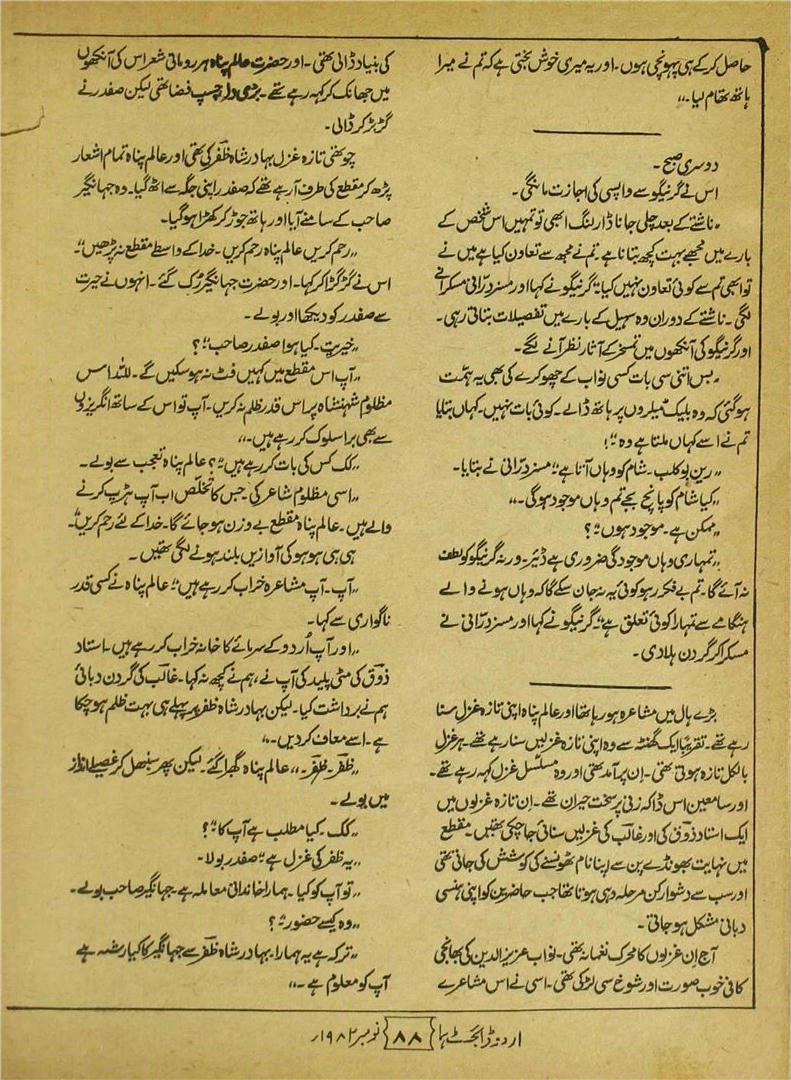 حاصل کر کے ہی پہونچی ہوں۔ اور یہ میری خوش بختی ہے کہ تم نے میرا
ہاتھ تھام لیا۔،،
دوسری صبح۔
اس نے گرنیگو سے واپسی کی اجازت مانگی۔
،،ناشتے کے بعد چلی جانا ڈارلنگ ابھی تو تمہیں اس شخص کے
بارے میں مجھے بہت کچھ بتانا ہے۔ تم نے مجھ سے تعاون کیا ہے میں نے
تو ابھی تم سے کوئی تعاون نہیں کیا،، گرنیگو نے کہا اور مسز درّانی مسکرانے
لگی۔ ناشتے کے دوران وہ سہیل کے بارے میں تفصیلات بتاتی رہی۔
اور گرنیگو کی آنکھوں میں تمسخر کے آثار نظر آنے لگے۔
،،بس اتنی سی بات کسی نواب کے چھوکرے کی بھی یہ ہمّت
ہوگئی کہ وہ بلیک ٹیلروں پر ہاتھ ڈالے۔ کوئی بات نہیں۔ کہاں بتایا
تم نے اسے کہاں ملتا ہے وہ،،!
،،رین بو کلب۔ شام کو وہاں آتا ہے،، مسز درّانی نے بتایا۔
،،کیا شام کو پانچ بجے تم وہاں موجود ہوگی۔،،
،،ممکن ہے۔ موجود ہوں،،؟
،،تمہاری وہاں موجودگی ضروری ہے ڈیئر۔ ورنہ گرنیگو کو لطف
نہ آئے گا۔ تم بے فکر رہو کوئی یہ نہ جان سکے گا کہ وہاں ہونے والے
ہنگامے سے تمہارا کوئی تعلق ہے،، گرنیگو نے کہا اور مسز درّانی نے
مسکرا کر گردن ہلا دی۔
بڑے ہال میں مشاعرہ ہو رہا تھا اور عالم پناہ اپنی تازہ غزل سنا
رہے تھے۔ تقریباً ایک گھنٹہ سے وہ اپنی تازہ غزلیں سنا رہے تھے۔ ہر غزل
بالکل تازہ ہوتی تھی۔ اِن پر آمد تھی اور وہ مسلسل غزل کہہ رہے تھے۔
اور سامعین اس ڈاکہ زنی پر سخت حیران تھے۔ اِن تازہ غزلوں میں
ایک استاد ذوق کی اور غالب کی غزلیں سنائی جا چکی تھیں۔ مقطع
میں نہایت بھونڈے پن سے اپنا نام ٹھونسنے کی کوشش کی جاتی تھی
اور سب سے دشوار کن مرحلہ وہی ہوتا تھا جب حاضرین کو اپنی ہنسی
دبانی مشکل ہو جاتی۔
آج اِن غزلوں کا محرک نغمانہ تھی۔ نواب عزیز الدین کی بھانجی
کافی خوب صورت اور شوخ سی لڑکی تھی۔ اسی نے اس مشاعرے
کی بنیاد ڈالی تھی۔ اور حضرت عالم پناہ ہر رومانی شعر اس کی آنکھوں
میں جھانک کر کہہ رہے تھے۔ بڑی دلچسپ فضا تھی لیکن صفدر نے
گڑبڑ کر ڈالی۔
چوتھی تازہ غزل بہادر شاہ ظفر کی تھی اور عالم پناہ تمام اشعار
پڑھ کر مقطع کی طرف آرہے تھے کہ صفدر اپنی جگہ سے اٹھ گیا۔ وہ جہانگیر
صاحب کے سامنے آیا اور ہاتھ جوڑ کر کھڑا ہوگیا۔
،،رحم کریں عالم پناہ رحم کریں۔ خدا کے واسطے مقطع نہ پڑھیں،،۔
اس نے گڑگڑا کر کہا۔ اور حضرت جہانگیر رُک گئے۔ انہوں نے حیرت
سے صفدر کو دیکھا اور بولے۔
،،خیریت۔ کیا ہوا صفدر صاحب،،؟
،،آپ اس مقطع میں کہیں فٹ نہ ہو سکیں گے۔ للّٰلہ اس
مظلوم شہنشاہ پر اس قدر ظلم نہ کریں۔ آپ تو اس کے ساتھ انگریزوں
سے بھی برا سلوک کر رہے ہیں۔،،
،،کک کس کی بات کر رہے ہیں،،؟ عالم پناہ تعجب سے بولے۔
،،اسی مظلوم شاعر کی۔ جس کا تخلّص اب آپ ہڑپ کرنے
والے ہیں۔ عالم پناہ مقطع بے وزن ہو جائے گا۔ خدا کے لئے رحم کریں،،۔
ہی ہی ہو ہو کی آوازیں بلند ہونے لگی تھیں۔
،،آپ۔ آپ مشاعرہ خراب کر رہے ہیں،، عالم پناہ نے کسی قدر
ناگواری سے کہا۔
،،اور آپ اُردو کے سرمائے کا خانہ خراب کر رہے ہیں۔ استاد
ذوق کی مٹی پلید کی آپ نے، ہم نے کچھ نہ کہا۔ غالب کی گردن دبائی
ہم نے برداشت کیا۔ لیکن بہادر شاہ ظفر پر پہلے ہی بہت ظلم ہو چکا
ہے۔ اسے معاف کر دیں۔،،
،،ظفر۔ ظفر۔،، عالم پناہ گھبرا گئے۔ لیکن پھر سنبھل کر غصیلے انداز
میں بولے۔
،،کک۔ کیا مطلب ہے آپ کا،،؟
،،یہ ظفر کی غزل ہے،، صفدر بولا۔
،،تو آپ کو کیا۔ ہمارا خاندانی معاملہ ہے۔ جہانگیر صاحب بولے۔
،،وہ کیسے حضور،،؟
،،ترکہ ہے یہ ہمارا۔ بہادر شاہ ظفر سے جہانگیر کا کیا رشتہ ہے
آپ کو معلوم ہے۔،،
اردو ڈائجسٹ ہما {۸۸} نومبر ۱۹۸۲ء